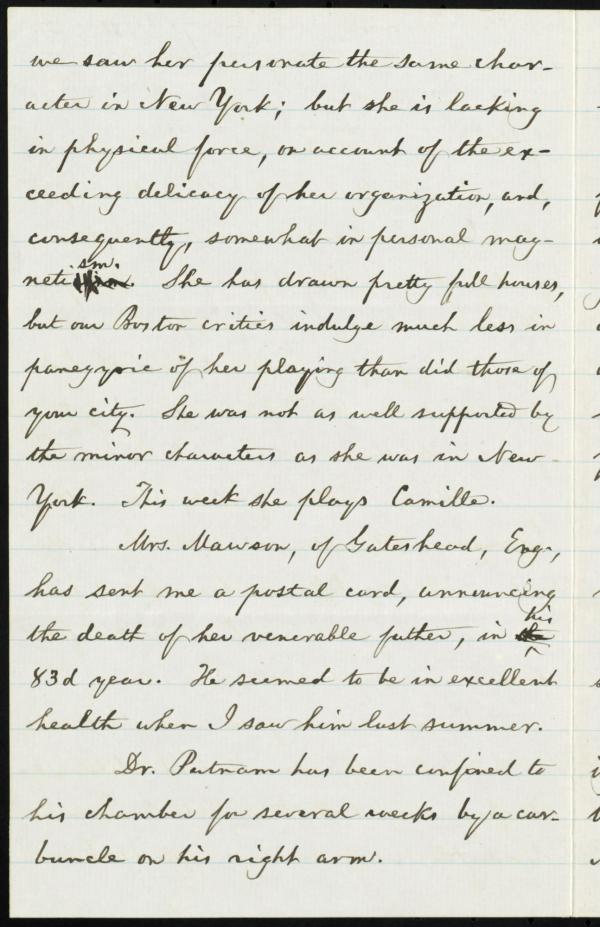 we saw her personate the same char-
acter in New York; but she is lacking
in physical force, on account of the ex-
ceeding delicacy of her organization, and,
consequently, somewhat in personal mag-
netism. She has drawn pretty full houses,
but our Boston critics indulge much less in
panegyric of her playing than did those of
your city. She was not as well supported by
the minor characters as she was in New
York. This week she plays Camille.
Mrs. Mawson, of Gateshead, Eng.,
has sent me a postal card, announcing
the death of her venerable father, in his
83d year. He seemed to be in excellent
health when I saw him last summer.
Dr. Putnam has been confined to
his chamber for several weeks by a car-
buncle on his right arm.